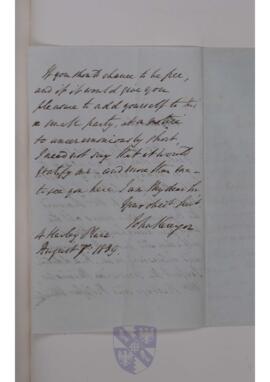 If you should chance to be free,
and if it would give you
pleasure to add yourself to this
small party, at a notice
so unceremoniously short,
I need not say that it would
gratify me - and more than me -
to see you here. I am My dear Sir
Your obedt Servt
John Kenyon
4 Harley Place
August 7. 1839